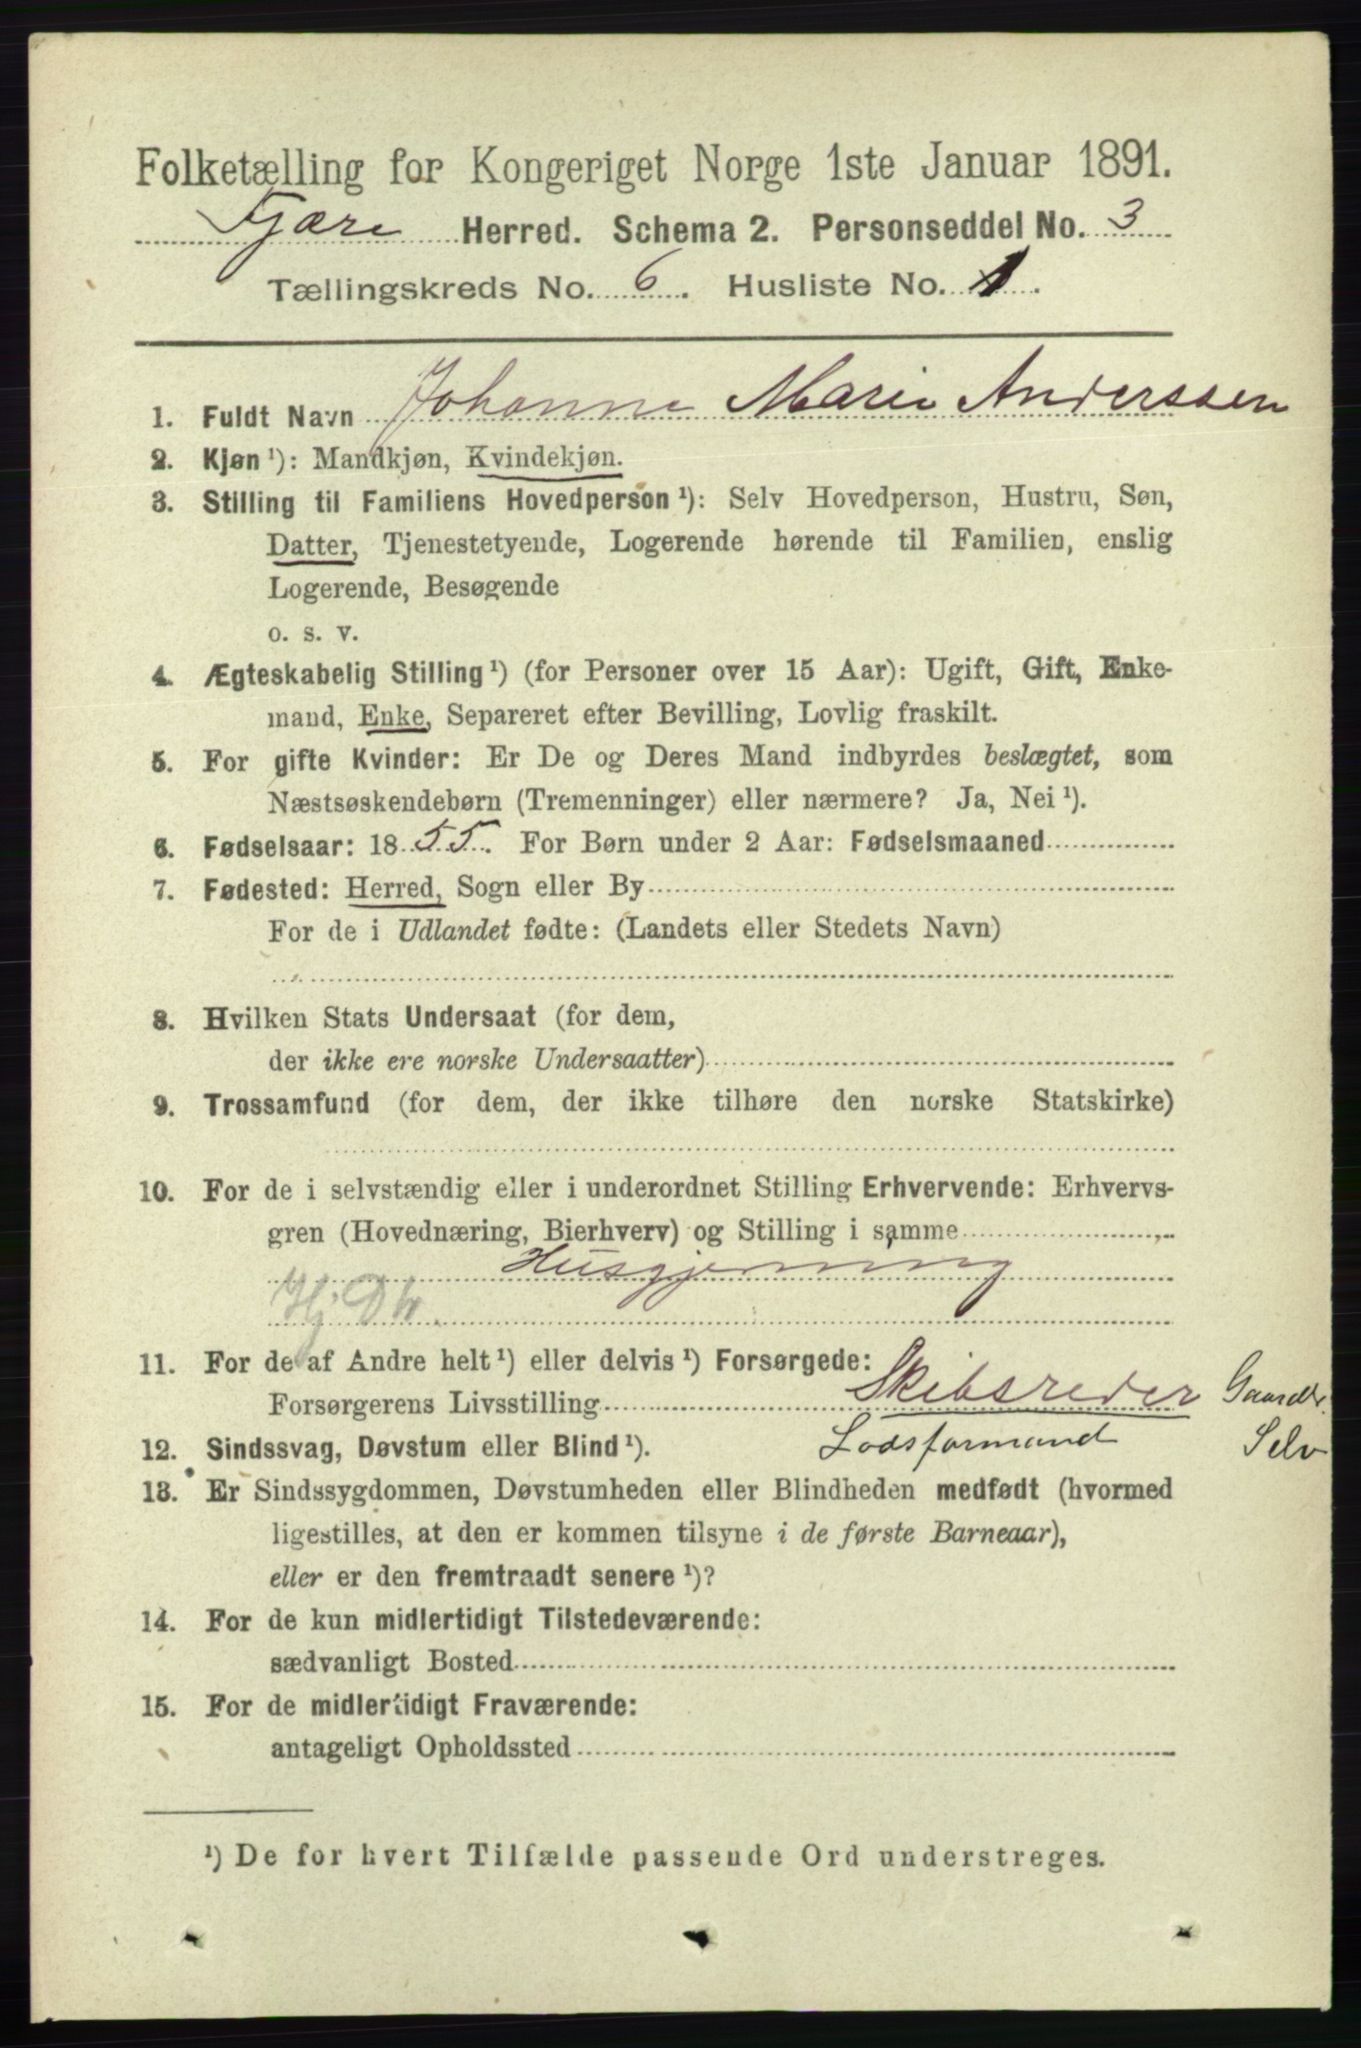 Folketælling for Kongeriget Norge 1ste Januar 1891.
Fjære Herred. Schema 2. Personseddel No. 3
Tællingskreds No. 6. Husliste No. 1.
1. Fuldt Navn Johanne Marie Anderssen
2. Kjøn ¹): Mandkjøn, Kvindekjøn.
3. Stilling til Familiens Hovedperson ¹): Selv Hovedperson, Hustru, Søn,
Datter, Tjenestetyende, Logerende hørende til Familien, enslig
Logerende, Besøgende
o. s. v.
4. Ægteskabelig Stilling ¹) (for Personer over 15 Aar): Ugift, Gift, Enke-
mand, Enke, Separeret efter Bevilling, Lovlig fraskilt.
5. For gifte Kvinder: Er De og Deres Mand indbyrdes beslægtet, som
Næstsøskendebørn (Tremenninger) eller nærmere? Ja, Nei ¹).
6. Fødselsaar: 1855. For Børn under 2 Aar: Fødselsmaaned
7. Fødested: Herred, Sogn eller By
For de i Udlandet fødte: (Landets eller Stedets Navn)
8. Hvilken Stats Undersaat (for dem,
der ikke ere norske Undersaatter)
9. Trossamfund (for dem, der ikke tilhøre den norske Statskirke)
10. For de i selvstændig eller i underordnet Stilling Erhvervende: Erhvervs-
gren (Hovednæring, Bierhverv) og Stilling i samme
Husgjerning
Hj Dtr.
11. For de af Andre helt ¹) eller delvis ¹) Forsørgede:
Forsørgerens Livsstilling Skibsreder Gaardbr.
12. Sindssvag, Døvstum eller Blind ¹). Lodsformand Selv
13. Er Sindssygdommen, Døvstumheden eller Blindheden medfødt (hvormed
ligestilles, at den er kommen tilsyne i de første Barneaar),
eller er den fremtraadt senere ¹)?
14. For de kun midlertidigt Tilstedeværende:
sædvanligt Bosted
15. For de midlertidigt Fraværende:
antageligt Opholdssted
¹) De for hvert Tilfælde passende Ord understreges.